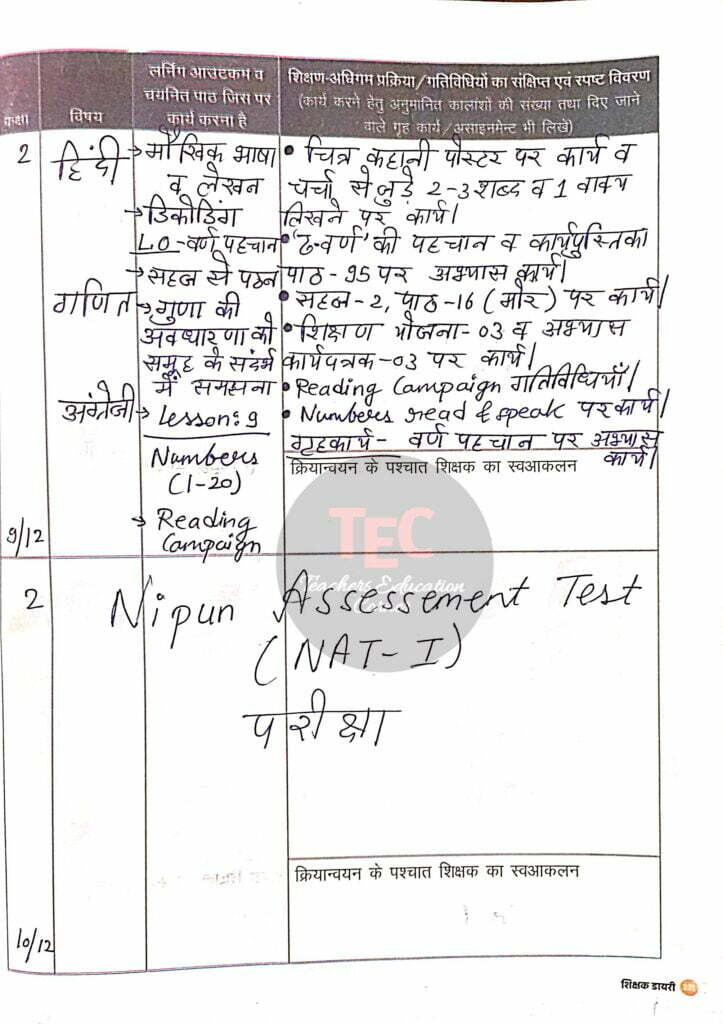 कक्षा
विषय
लर्निंग आउटकम व
चयनित पाठ जिस पर
कार्य करना है
शिक्षण-अधिगम प्रक्रिया/गतिविधियों का संक्षिप्त एवं स्पष्ट विवरण
(कार्य करने हेतु अनुमानित कालांशों की संख्या तथा दिए जाने
वाले गृह कार्य/असाइनमेन्ट भी लिखें)
2
हिंदी
→ मौखिक भाषा
व लेखन
→ डिकोडिंग
L.O - वर्ण पहचान
→ सहज से पठन
• चित्र कहानी पोस्टर पर कार्य व
चर्चा से जुड़े 2-3 शब्द व 1 वाक्य
लिखने पर कार्य।
• वर्ण' की पहचान व कार्यपुस्तिका
पाठ - 95 पर अभ्यास कार्य।
• सहज-2, पाठ-16 (मोर) पर कार्य।
गणित
→ गुणा की
अवधारणा को
समूह के संदर्भ
में समझना
• शिक्षण योजना-03 व अभ्यास
कार्यपत्रक-03 पर कार्य।
अंग्रेजी
→ Lesson: 9
Numbers
(1-20)
→ Reading
Campaign
• Reading Campaign गतिविधियाँ।
• Numbers read & speak पर कार्य।
गृहकार्य - वर्ण पहचान पर अभ्यास
कार्य।
क्रियान्वयन के पश्चात शिक्षक का स्वआकलन
9/12
TEC
Teachers Education
Corner
2
Nipun Assessement Test
(NAT-I)
परीक्षा
क्रियान्वयन के पश्चात शिक्षक का स्वआकलन
10/12
शिक्षक डायरी